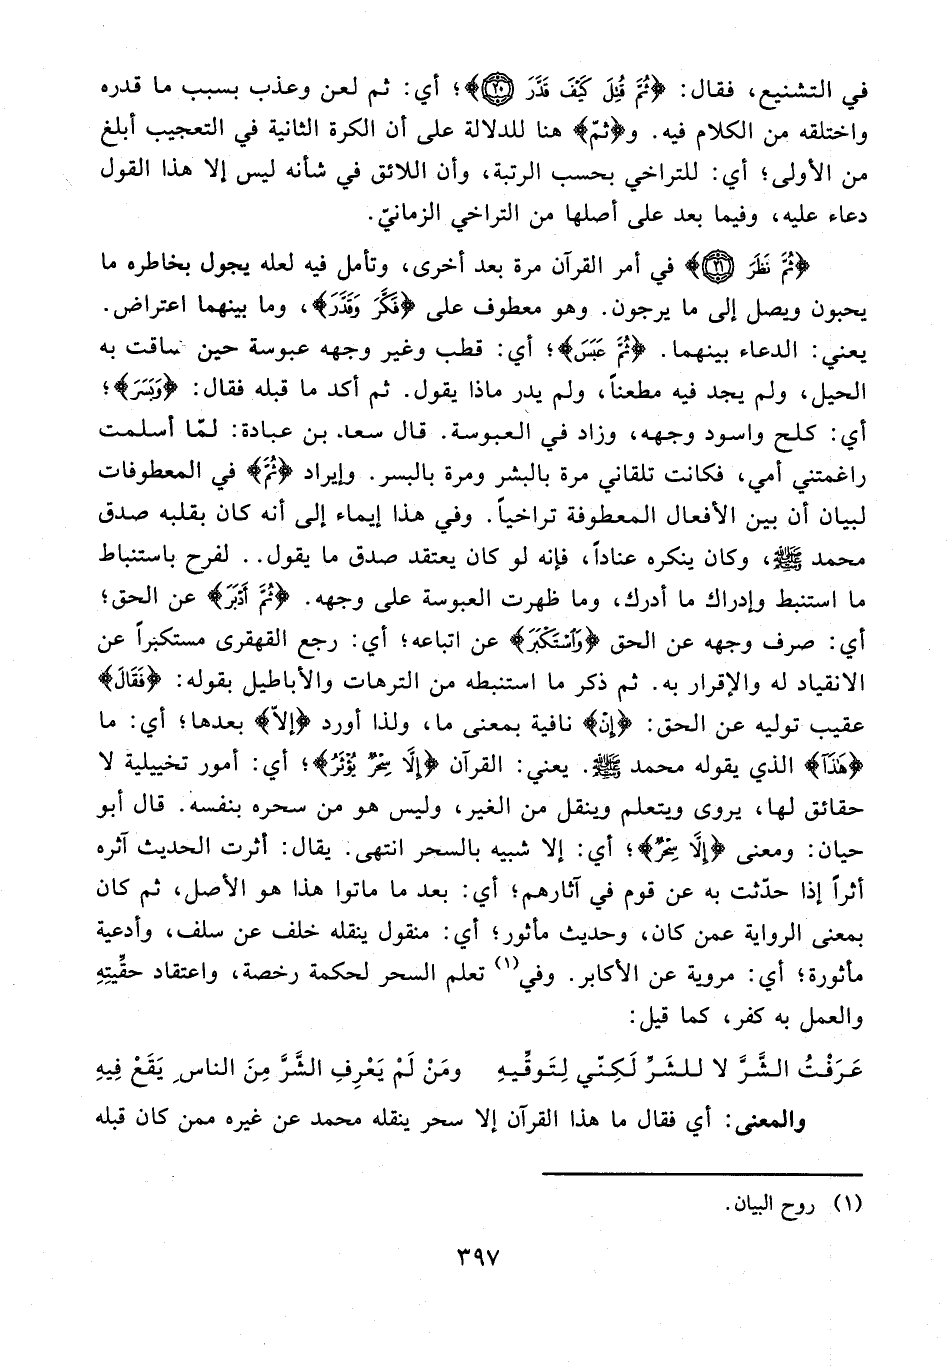 في التشنيع، فقال: ﴿ثُمَّ قُتِلَ كَيْفَ قَدَّرَ ﴿٢٠﴾﴾؛ أي: ثم لعن وعذب بسبب ما قدره
واختلقه من الكلام فيه. و﴿ثمّ﴾ هنا للدلالة على أن الكرة الثانية في التعجيب أبلغ
من الأولى؛ أي: للتراخي بحسب الرتبة، وأن اللائق في شأنه ليس إلا هذا القول
دعاء عليه، وفيما بعد على أصلها من التراخي الزمانيّ.
﴿ثُمَّ نَظَرَ ﴿٢١﴾﴾ في أمر القرآن مرة بعد أخرى، وتأمل فيه لعله يجول بخاطره ما
يحبون ويصل إلى ما يرجون. وهو معطوف على ﴿فَكَّرَ وَقَدَّرَ﴾، وما بينهما اعتراض.
يعني: الدعاء بينهما. ﴿ثُمَّ عَبَسَ﴾؛ أي: قطب وغير وجهه عبوسة حين ضاقت به
الحيل، ولم يجد فيه مطعناً، ولم يدر ماذا يقول. ثم أكد ما قبله فقال: ﴿وَبَسَرَ﴾؛
أي: كلح واسود وجهه، وزاد في العبوسة. قال سعد بن عبادة: لمّا أسلمت
راغمتني أمي، فكانت تلقاني مرة بالبشر ومرة بالبسر. وإيراد ﴿ثُمَّ﴾ في المعطوفات
لبيان أن بين الأفعال المعطوفة تراخياً. وفي هذا إيماء إلى أنه كان بقلبه صدق
محمد ﷺ، وكان ينكره عناداً، فإنه لو كان يعتقد صدق ما يقول.. لفرح باستنباط
ما استنبط وإدراك ما أدرك، وما ظهرت العبوسة على وجهه. ﴿ثُمَّ أَدْبَرَ﴾ عن الحق؛
أي: صرف وجهه عن الحق ﴿وَاسْتَكْبَرَ﴾ عن اتباعه؛ أي: رجع القهقرى مستكبراً عن
الانقياد له والإقرار به. ثم ذكر ما استنبطه من الترهات والأباطيل بقوله: ﴿فَقَالَ﴾
عقيب توليه عن الحق: ﴿إِنْ﴾ نافية بمعنى ما، ولذا أورد ﴿إلاّ﴾ بعدها؛ أي: ما
﴿هَذَآ﴾ الذي يقوله محمد ﷺ. يعني: القرآن ﴿إِلَّا سِحْرٌ يُؤْثَرُ﴾؛ أي: أمور تخييلية لا
حقائق لها، يروى ويتعلم وينقل من الغير، وليس هو من سحره بنفسه. قال أبو
حيان: ومعنى ﴿إِلَّا سِحْرٌ﴾؛ أي: إلا شبيه بالسحر انتهى. يقال: أثرت الحديث آثره
أثراً إذا حدّثت به عن قوم في آثارهم؛ أي: بعد ما ماتوا هذا هو الأصل، ثم كان
بمعنى الرواية عمن كان، وحديث مأثور؛ أي: منقول ينقله خلف عن سلف، وأدعية
مأثورة؛ أي: مروية عن الأكابر. وفي(١) تعلم السحر لحكمة رخصة، واعتقاد حقِّيتِهِ
والعمل به كفر، كما قيل:
عَرَفْتُ الشَّرَّ لا للشَرِّ لَكِنّي لِتَوقِّيهِ ومَنْ لَمْ يَعْرِفِ الشَّرَّ مِنَ الناسِ يَقَعْ فِيهِ
والمعنى: أي فقال ما هذا القرآن إلا سحر ينقله محمد عن غيره ممن كان قبله
(١) روح البيان.
٣٩٧